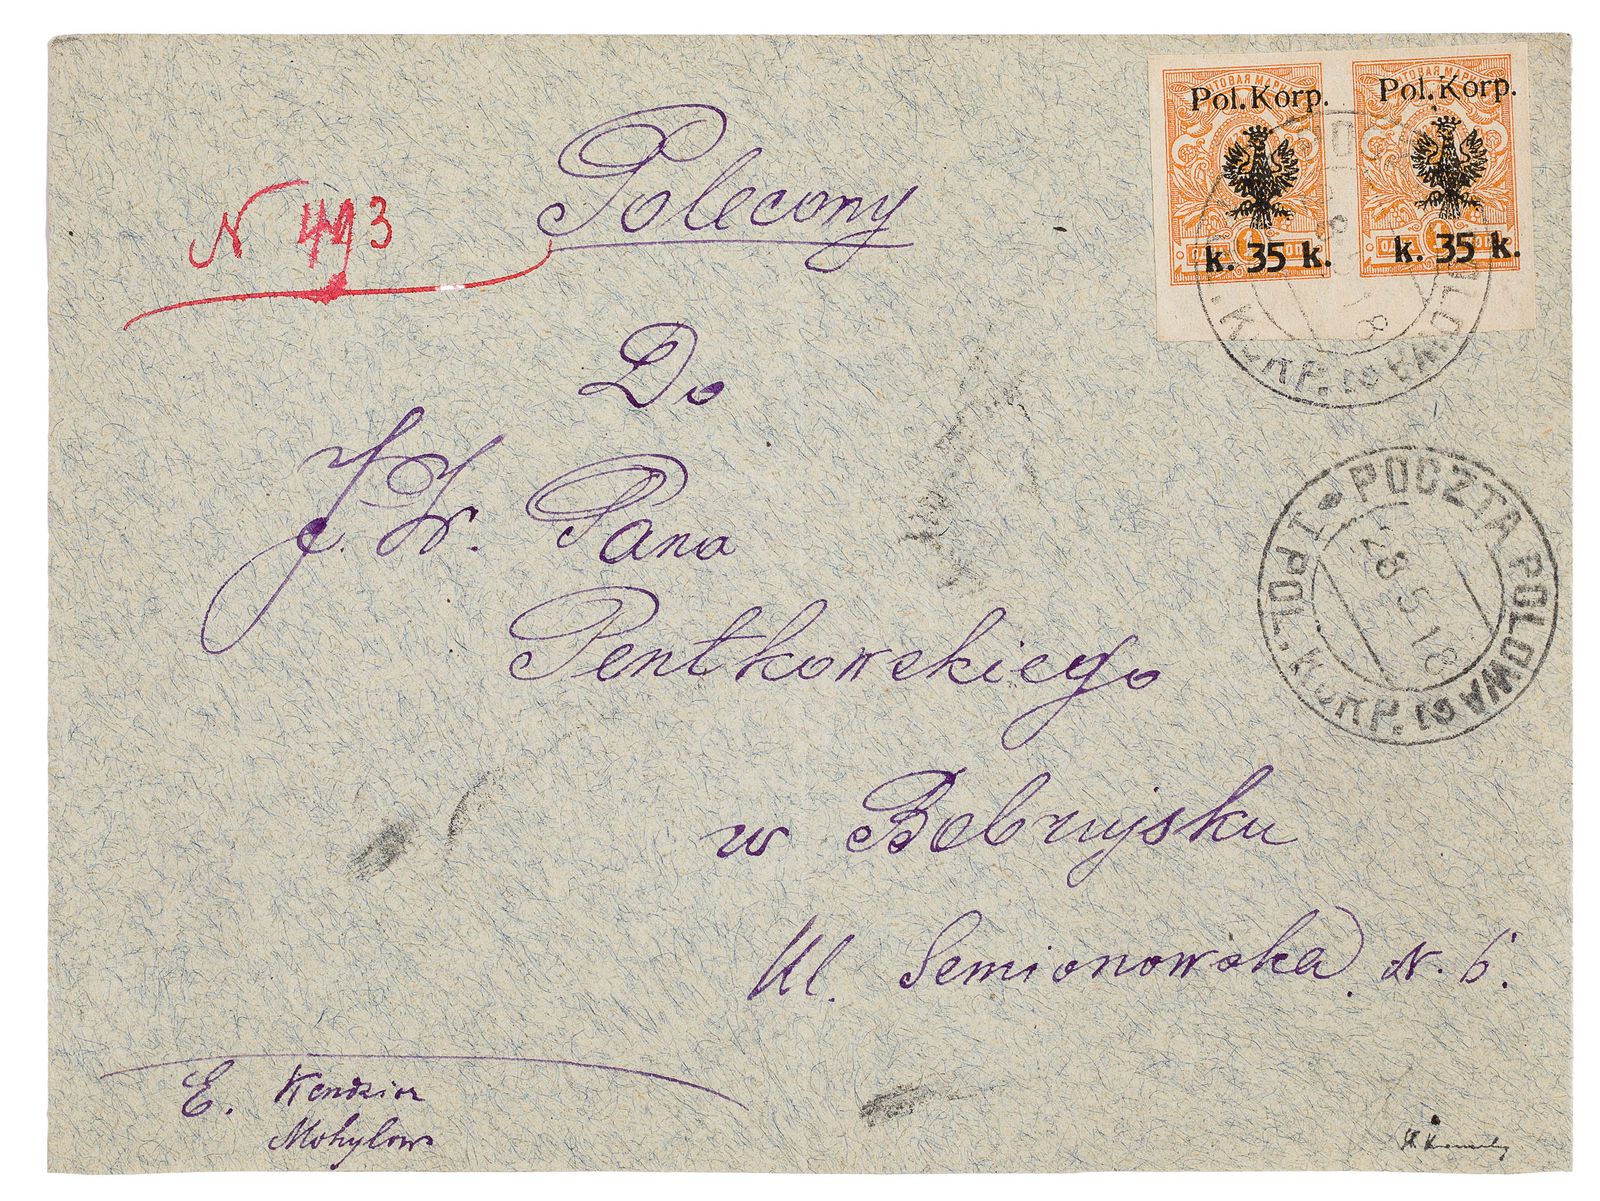 Pol. Korp. Pol. Korp.
k. 35 k. k. 35 k.
N 493
Polecony
Do
J. W. Pana
Pentkowskiego
w Bobrujsku
Ul. Semionowska N. 6.
POCZTA POLOWA
1 POL. KORP.
28 5 18
E. Kendzior
Mohylow